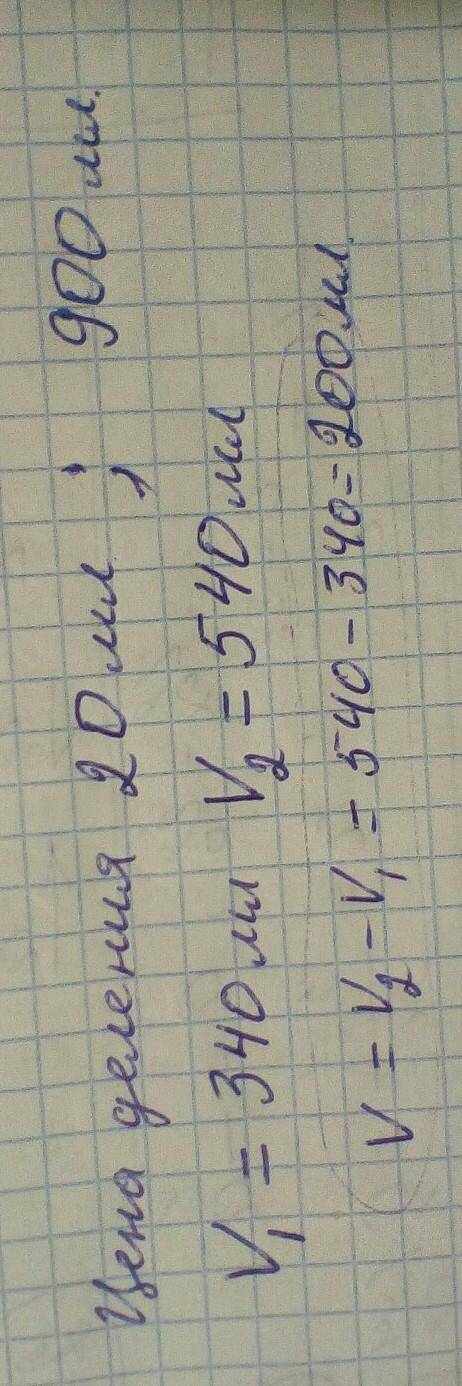 Цена деления 20 мл ; 900 мл.
V₁ = 340 мл V₂ = 540 мл
V = V₂ - V₁ = 540 - 340 = 200 мл.